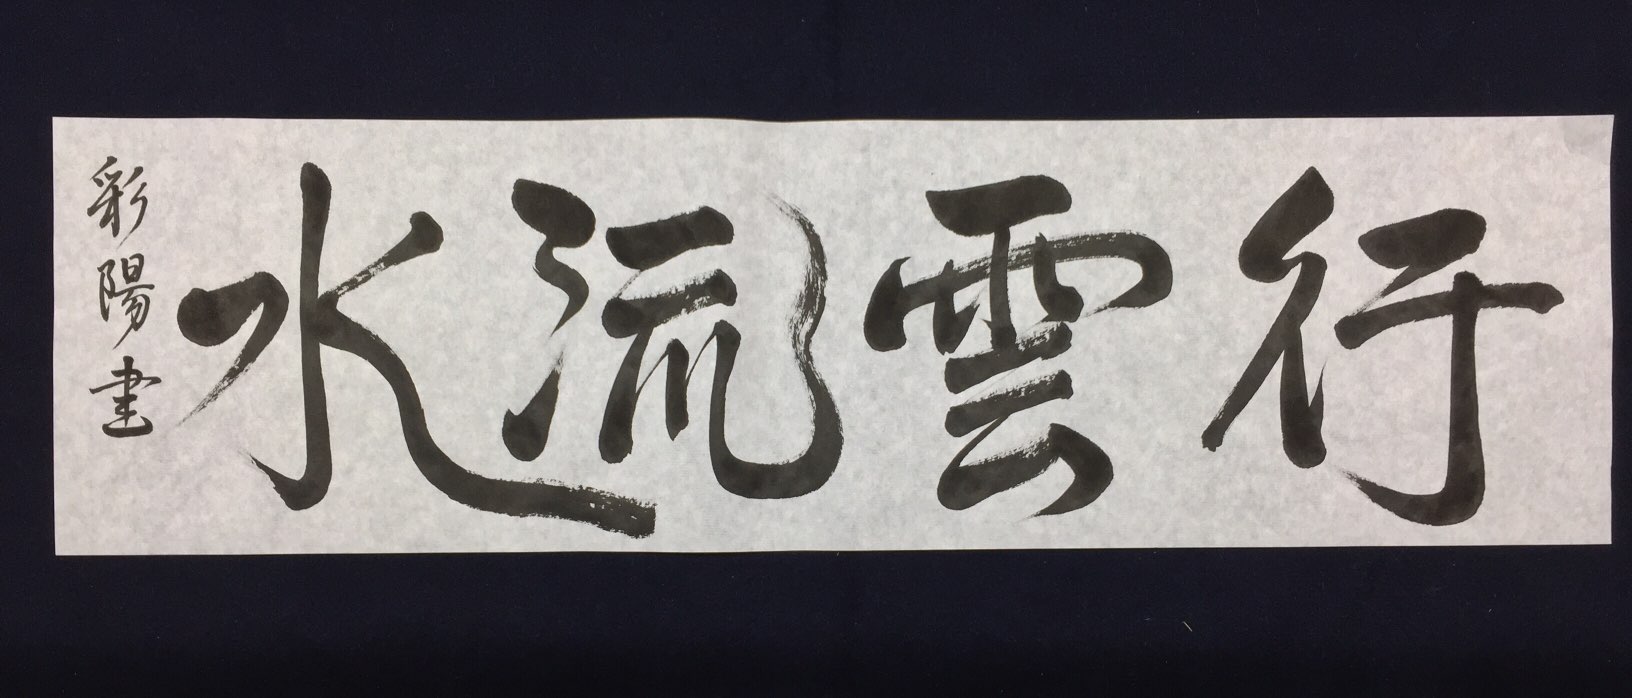 行雲流水
彩陽書